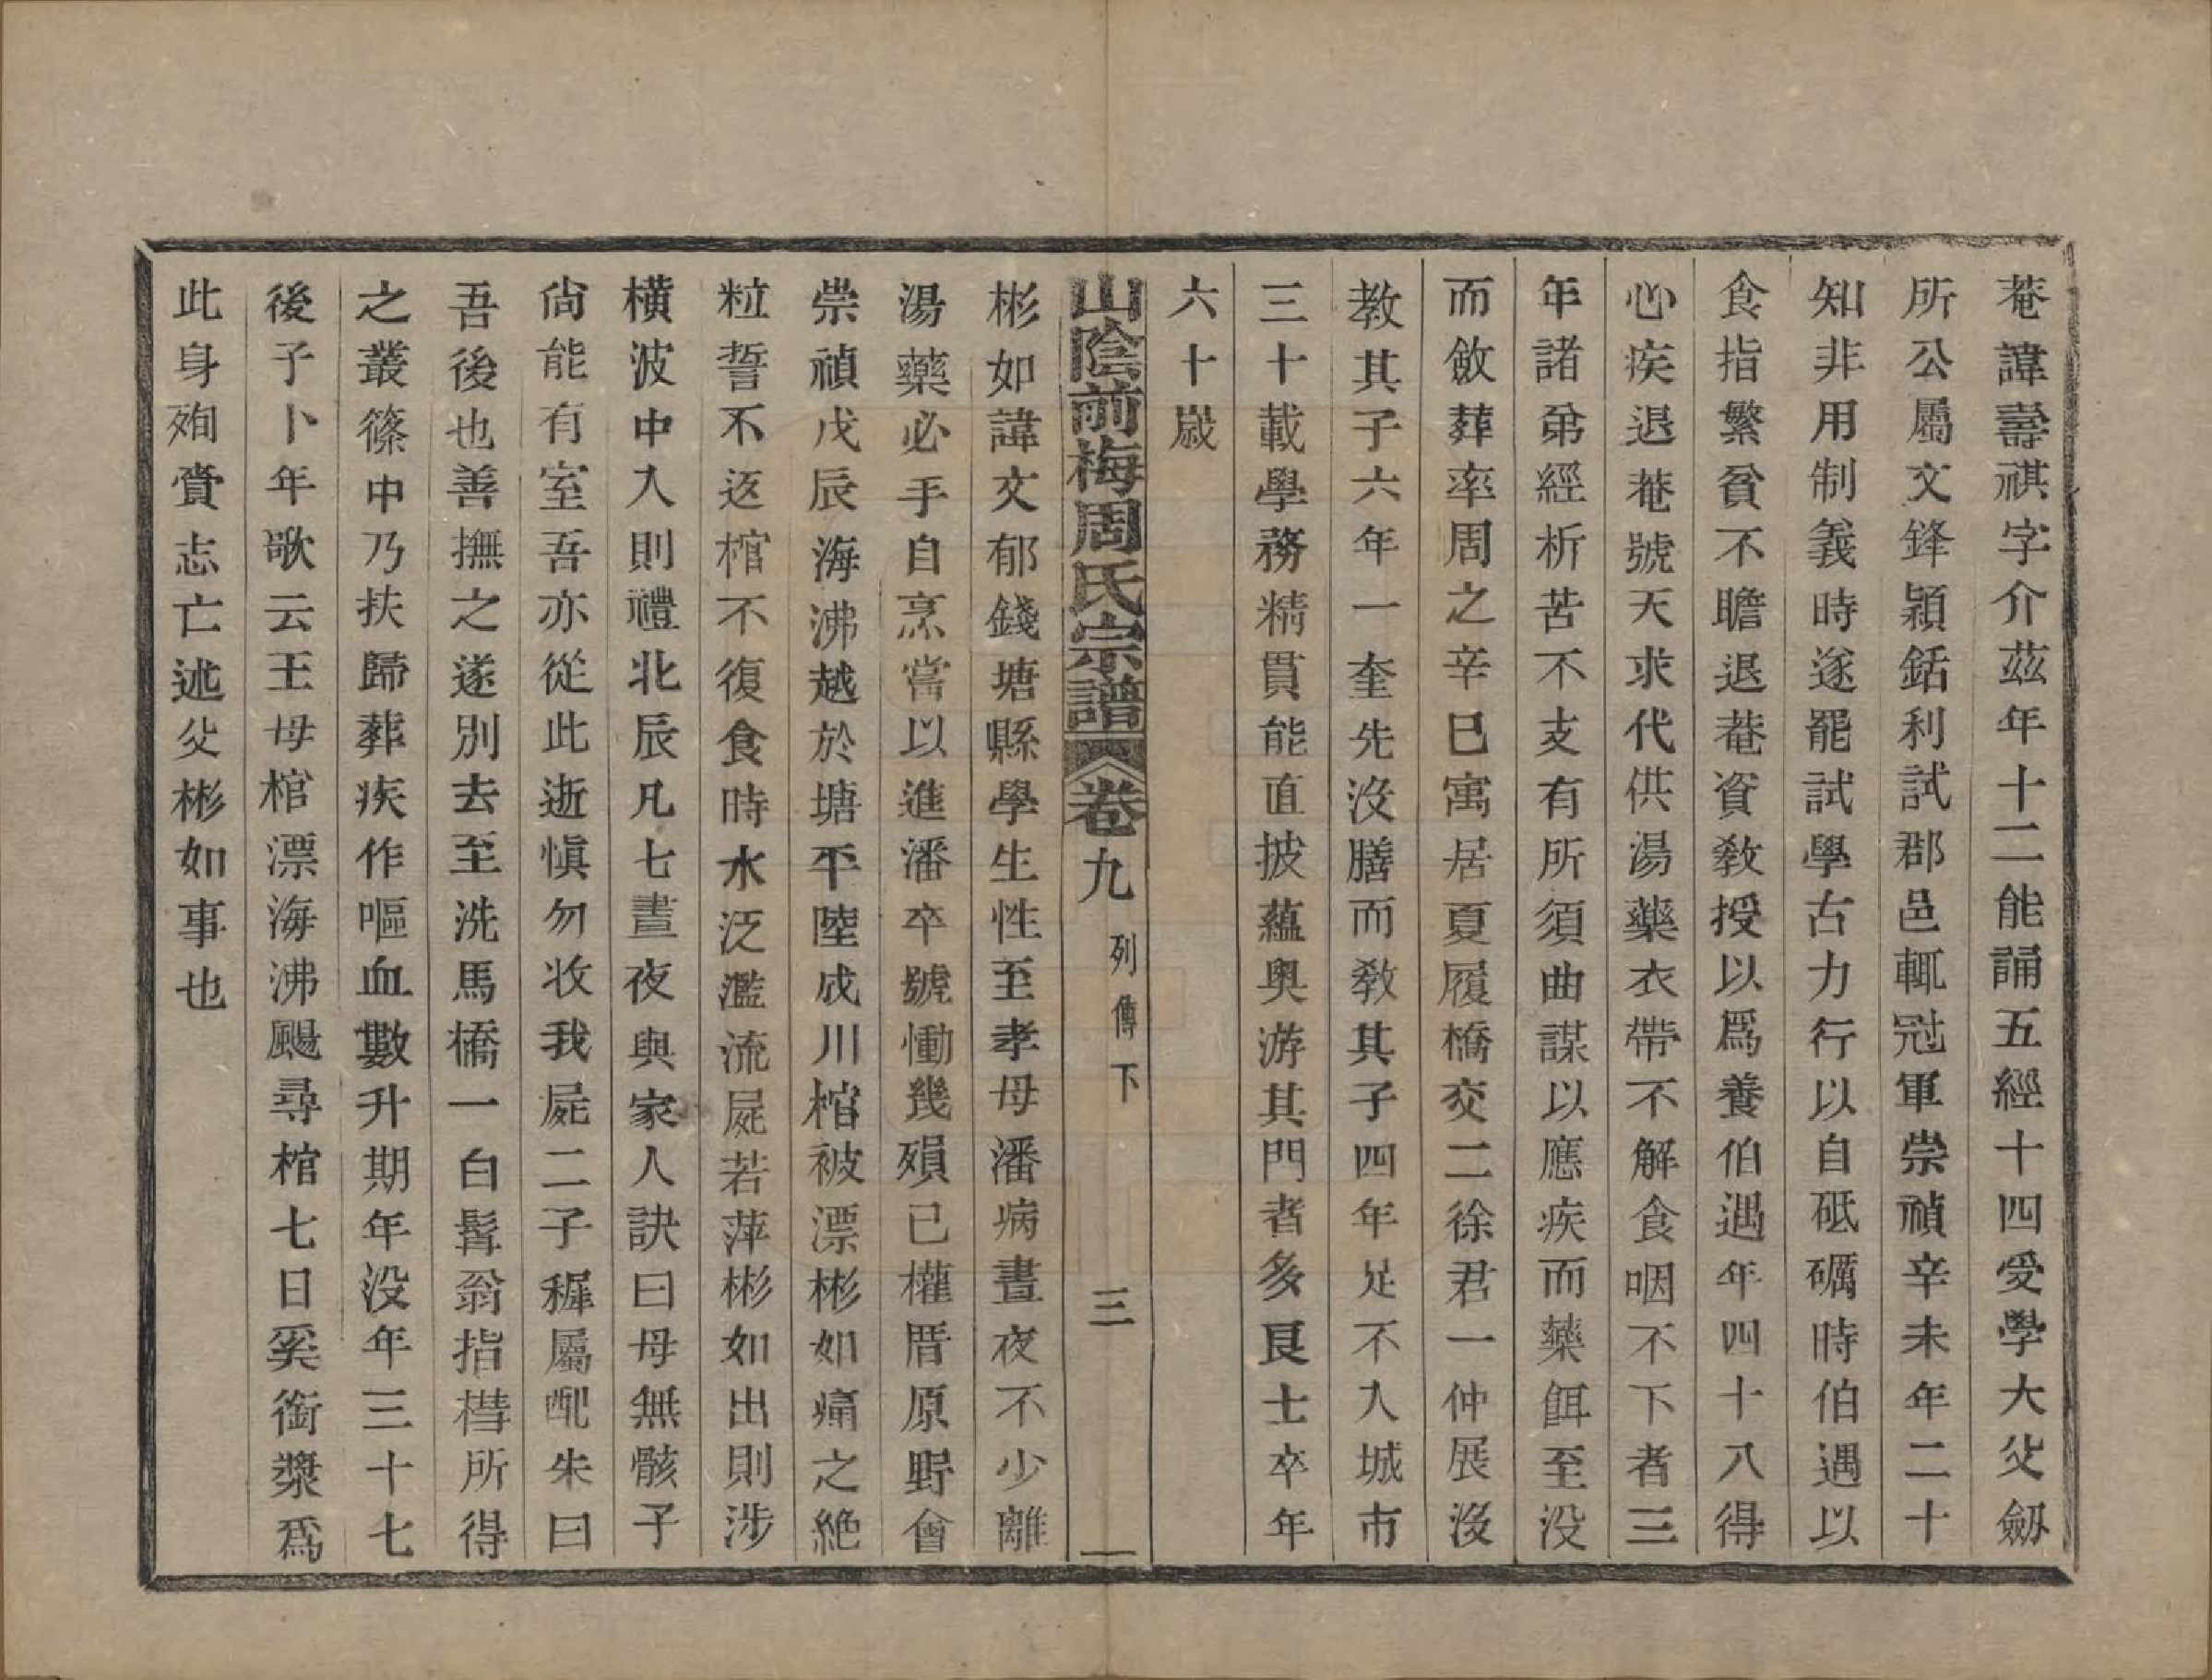 菴諱壽祺字介茲年十二能誦五經十四受學大父劒
所公屬文鋒穎銛利試郡邑輒冠軍崇禎辛未年二十
知非用制義時遂罷試學古力行以自砥礪時伯遇以
食指繁貧不瞻退菴資敎授以爲養伯遇年四十八得
心疾退菴號天求代供湯藥衣帶不解食咽不下者三
年諸弟經析苦不支有所須曲謀以應疾而藥餌至没
而斂葬率周之辛巳寓居夏履橋交二徐君一仲展没
教其子六年一奎先没膳而教其子四年足不入城市
三十載學務精貫能直披蘊奧游其門者多良士卒年
六十嵗
山陰前梅周氏宗譜 卷九 列傳下 三
彬如諱文郁錢塘縣學生性至孝母潘病晝夜不少離
湯藥必手自烹嘗以進潘卒號慟幾殞已權厝原野會
崇禎戊辰海沸越於塘平陸成川棺被漂彬如痛之絶
粒誓不返棺不復食時水泛濫流屍若萍彬如出則涉
橫波中入則禮北辰凡七晝夜與家人訣曰母無骸子
尙能有室吾亦從此逝愼勿收我屍二子穉屬配朱曰
吾後也善撫之遂別去至洗馬橋一白髯翁指槥所得
之叢篠中乃扶歸葬疾作嘔血數升期年没年三十七
後子卜年歌云王母棺漂海沸颺尋棺七日奚銜漿爲
此身殉賫志亡述父彬如事也